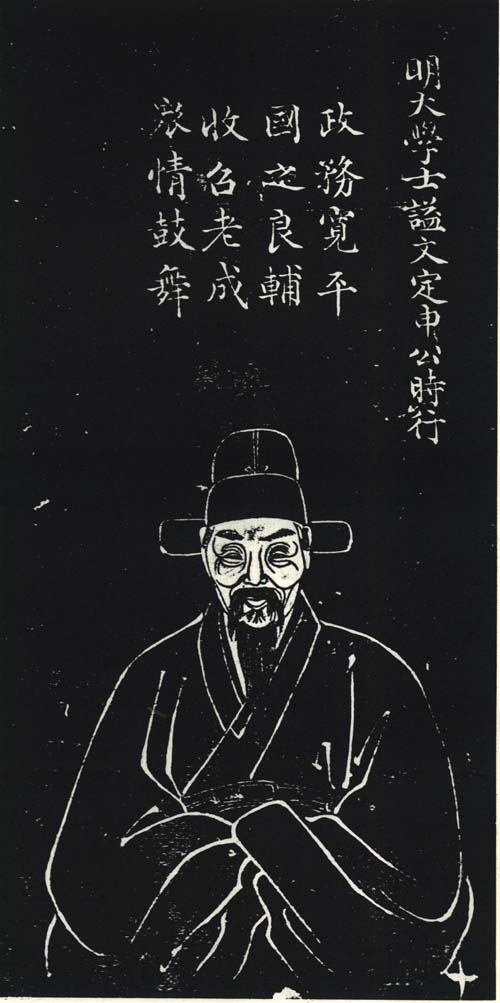 明大學士諡文定申公時行
政務寬平
國之良輔
收召老成
眾情鼓舞